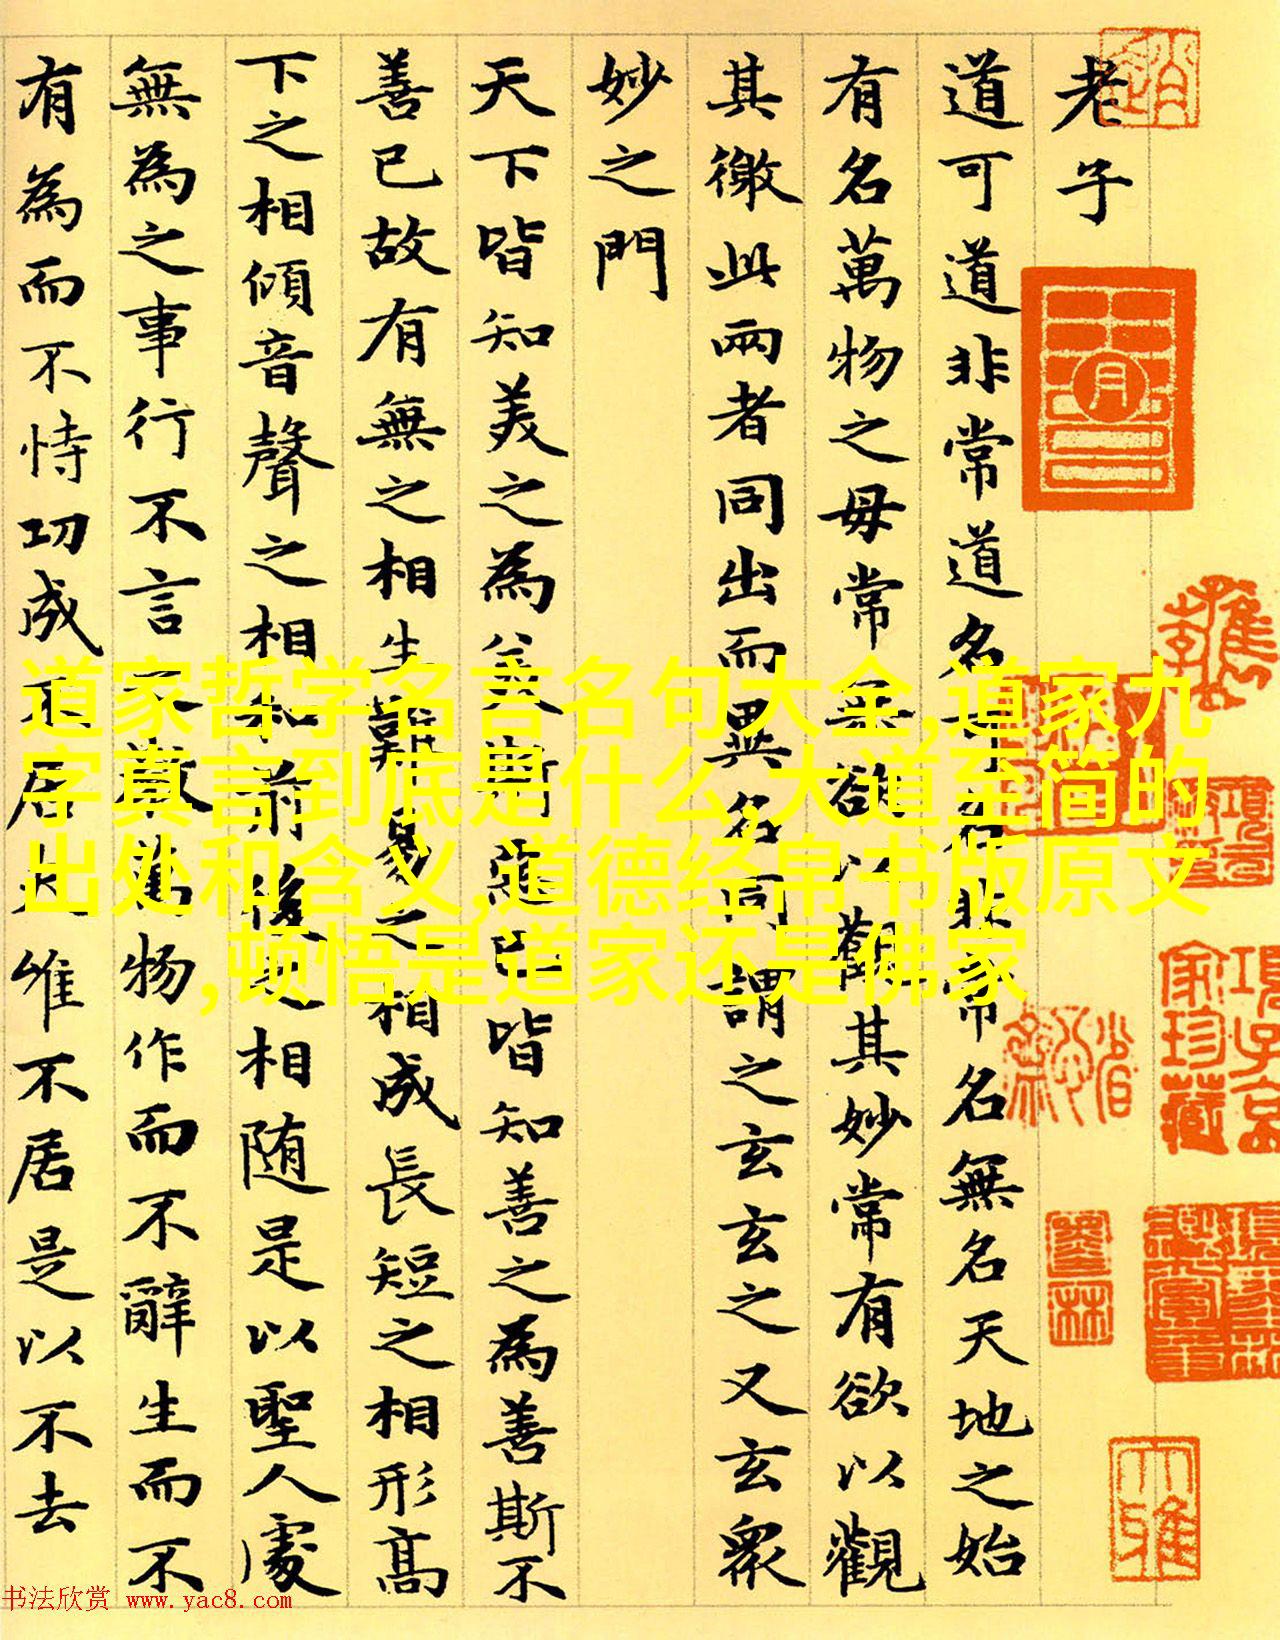 老子
道可道非常道名可名非常名無名天地之始
有名萬物之母常無欲以觀其妙常有欲以觀
其徼此兩者同出而異名同謂之玄玄之又玄衆
妙之門
天下皆知美之為美斯惡已皆知善之為善斯不
善已故有無之相生難易之相成長短之相形高
下之相傾音聲之相和前後之相随是以聖人處
無為之事行不言之教萬物作而不辭生而不
有為而不恃功成不居夫唯不居是以不去
道家哲学名言名句大全,道家九
字真言到底是什么,大道至简的
出处和含义,道德经帛书版原文
,顿悟是道家还是佛家
項子京
家珍藏
书法欣赏 www.yac8.com